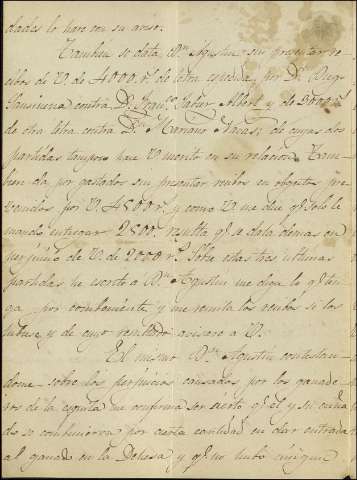 dades lo hare con su aviso.
Tambien se data Dn. Agustin sin presentar re-
cibos de V. de 4000 r.s de letra espedida por D. Diego
contra D. Fran.co Albert y de 3000 r.s
de otra letra contra D.n Mariano Nacas; de cuyas dos
partidas tampoco hace V. merito en su relacion. Tam-
bien da por gastados sin presentar recibos en obgetos pre-
venidos por V. 4800 r.s y como V. me dice q.e solo le
mando entregar 2800 resulta q.e se data demas en
perjuicio de V. de 2000 r.s Sobre estas tres ultimas
partidas he escrito a Dn. Agustin me diga lo q.e ten-
ga por combeniente, y me remita los recibos si los
tubiese y de cuyo resultado avisare a V.
El mismo Dn. Agustin contestan-
dome sobre los perjuicios causados por los ganade-
ros de la me confirma ser cierto q.e el y su cuña-
do se combinieron por cierta cantidad en dar entrada
al ganado en la Dehesa y q.e no hubo